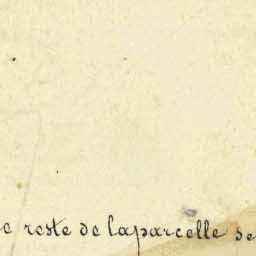 e reste de la parcelle se